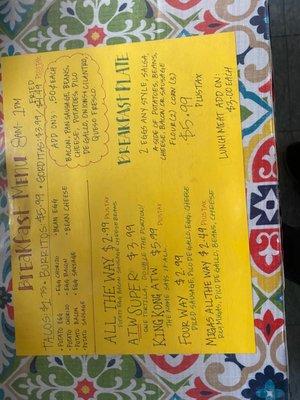 BREAKFAST MENU 8AM 1PM
TACOS $1.75. BURRITOS $5.99 . GORDITAS $3.99 $4.99 FRIED
PLUS TAX
• POTATO EGG
• POTATO CHORIZO
• POTATO BACON
• POTATO SAUSAGE
• EGG CHORIZO
• EGG BACON
• EGG SAUSAGE
• BEAN EGG
• BEAN CHEESE
ADD ON'S .50¢ EACH
BACON, PAN SAUSAGE, BEANS,
CHEESE, POTATOES, PICO
DE GALLO, ONIONS, CILANTRO,
QUESO FRESCO
ALL THE WAY $2.99 PLUS TAX
POTATO EGG BACON SAUSAGE CHEESE BEANS
ATW SUPER $3.99
ONE TORTILLA, DOUBLE THE PORTION!
KING KONG ATW $5.99 PLUS TAX
THE NAME SAYS IT ALL!
FOUR WAY $2.99
DICED SAUSAGE, PICO DE GALLO, EGG, CHEESE
MIGAS ALL THE WAY $2.49 PLUS TAX
EGG MIGAS, PICO DE GALLO, BEANS, CHEESE
BREAKFAST PLATE
2 EGGS ANY STYLE, SALSA
A SIDE OF POTATOES, BEANS,
CHEESE, BACON OR SAUSAGE
FLOUR(2) CORN(3)
$5.99
PLUS TAX
LUNCH MEAT ADD ON:
$3.00 EACH